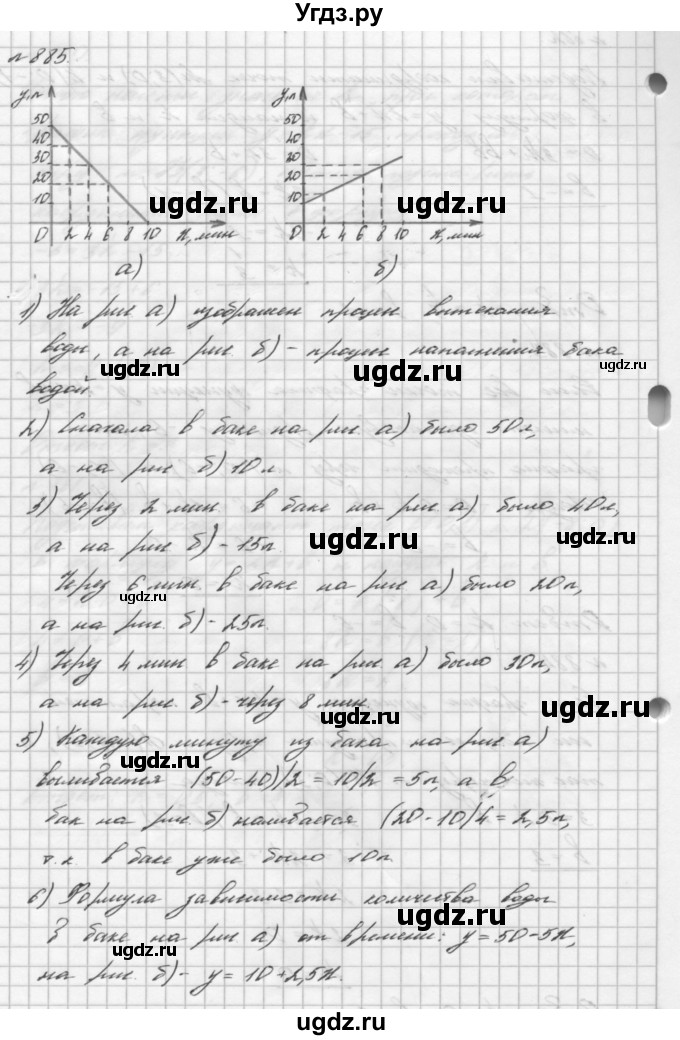 Угдз.ру
№ 885.
y, л
50
40
30
20
10
0 2 4 6 8 10 x, мин
а)
y, л
50
40
30
20
10
0 2 4 6 8 10 x, мин
б)
ugdz.ru ugdz.ru
1) На рис а) изображен процес вытекания
воды, а на рис. б) - процес наполнения бака
ugdz.ru ugdz.ru ugdz.ru
водой.
2) Сначала в баке на рис а) было 50л,
а на рис б) 10 л
3) Через 2 мин в баке на рис а) было 40л,
ugdz.ru ugdz.ru
а на рис б) - 15л
Через 6 мин в баке на рис а) было 20л,
ugdz.ru
а на рис. б) - 25л.
4) Через 4 мин в баке на рис а) было 30л,
а на рис. б) - через 8 мин.
ugdz.ru ugdz.ru
5) Каждую минуту из бака на рис а)
ugdz.ru
выливается (50-40)/2 = 10/2 = 5л, а в
бак на рис. б) наливается (20-10)/4 = 2,5л,
т.к. в баке уже было 10л.
6) Формула зависимости количества воды
ugdz.ru
в баке на рис а) от времени: y = 50-5x,
ugdz.ru
на рис. б) - y = 10+2,5x.
ugdz.ru
ugdz.ru